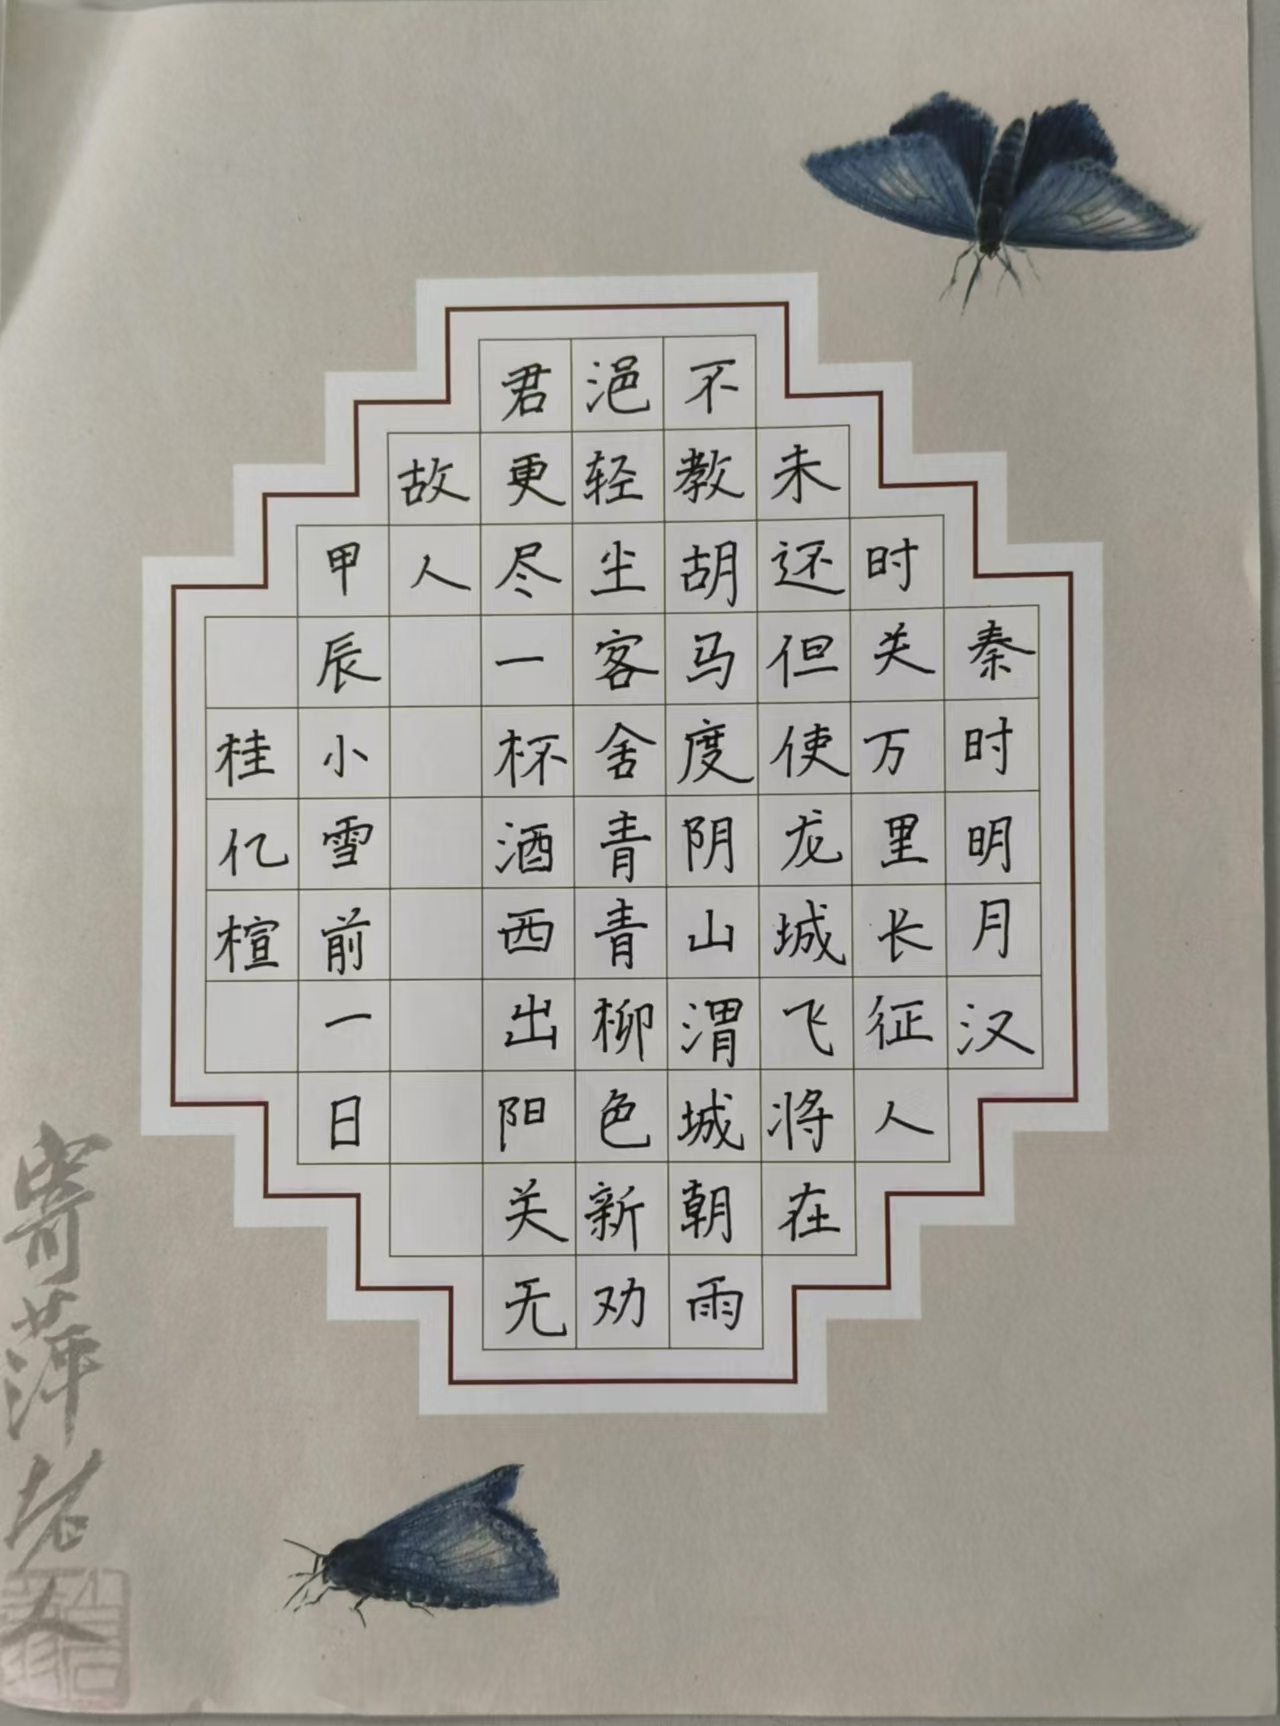 秦时明月汉
时关万里长征人
未还但使龙城飞将在
不教胡马度阴山渭城朝雨
浥轻尘客舍青青柳色新劝
君更尽一杯酒西出阳关无
故人
甲辰小雪前一日
桂亿楦
寄萍老人